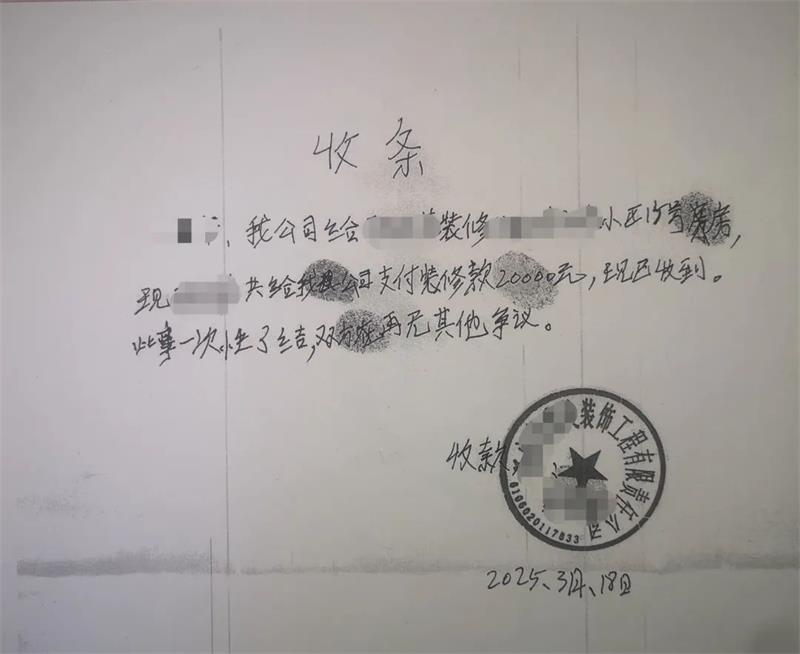 收条
、我公司给 装修 小区15号 房,
现 共给我 公司支付装修款20000元,现已收到。
此事一次性了结,双方在再无其他争议。
收款
装饰工程有限责任公司
6106020117833
2025、3月、18日